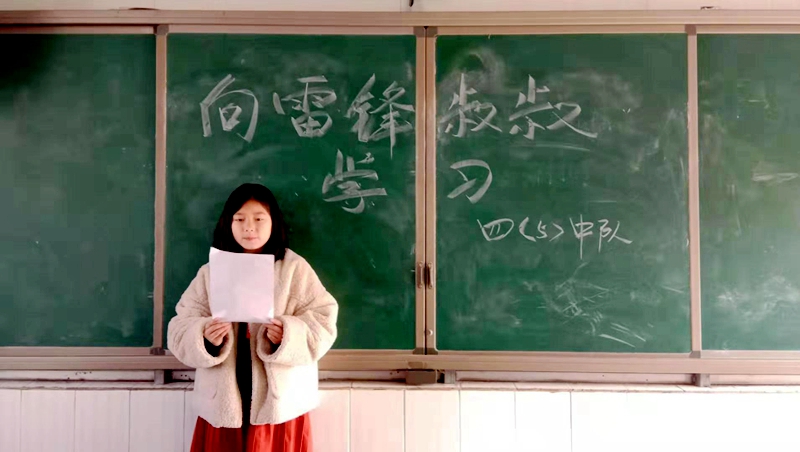 向雷锋叔叔
学习
四<5>中队